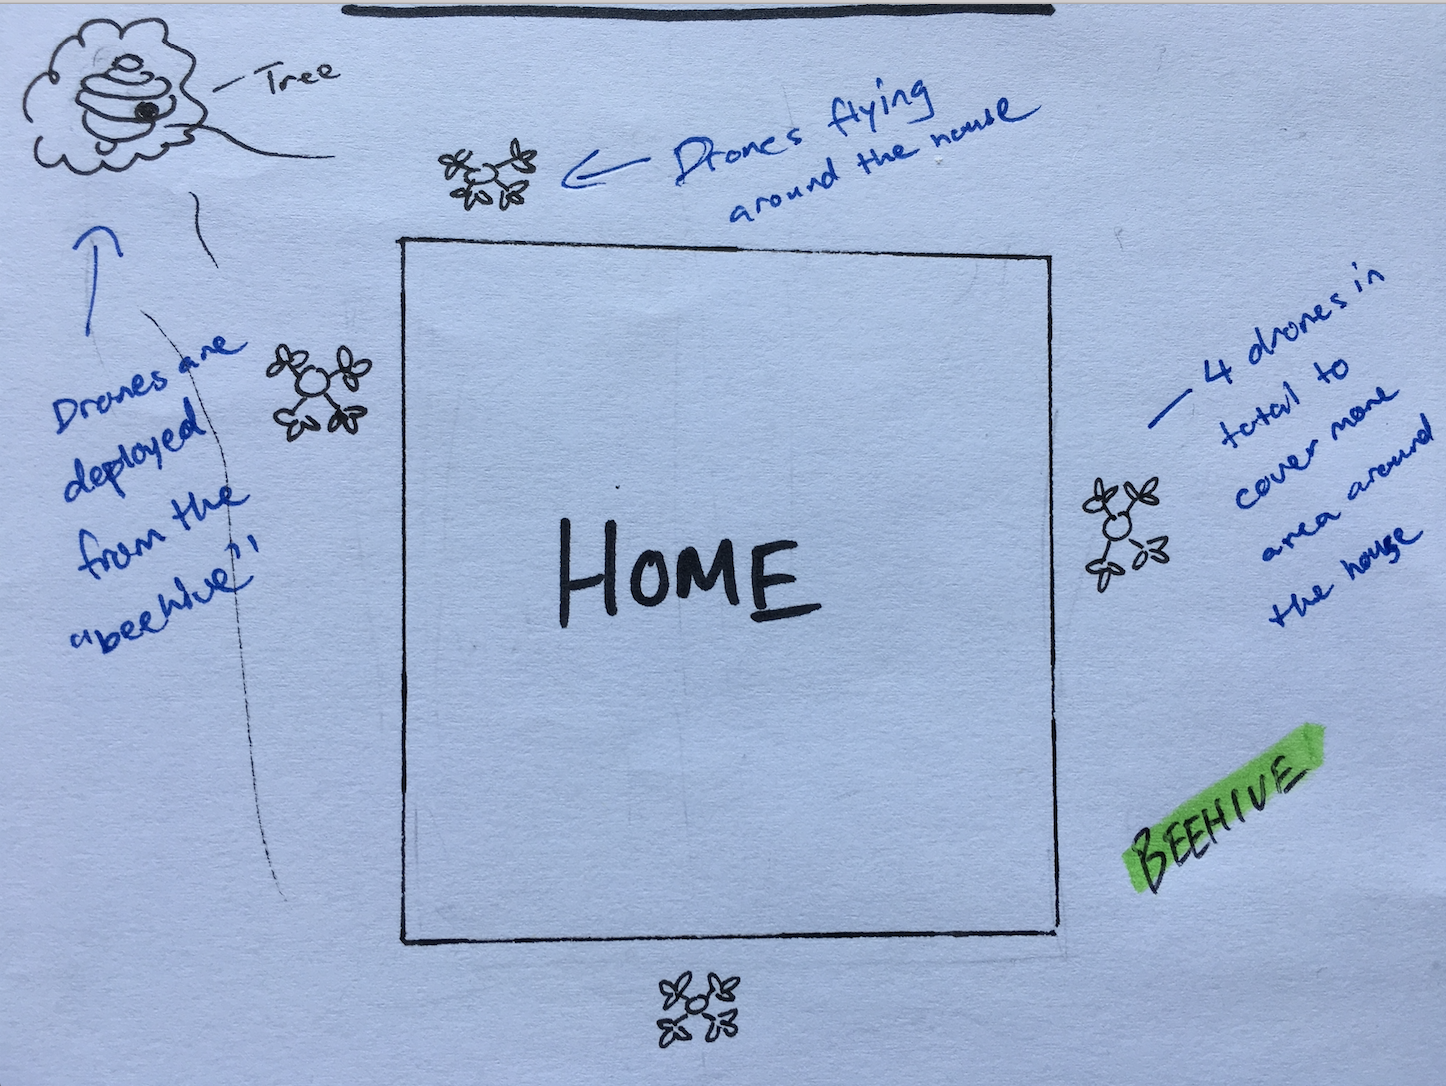 Tree
Drones flying
around the house
Drones are
deployed
from the
"beehive"
4 drones in
total to
cover more
area around
the house
HOME
BEEHIVE